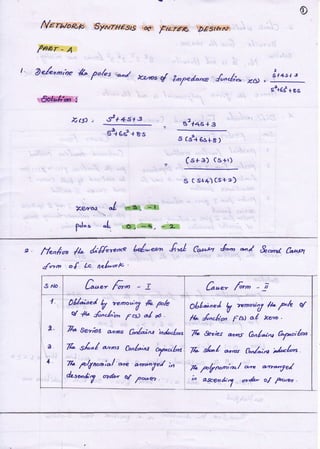 ①
NETWORK SYNTHESIS & FILTER DESIGN
PART - A
1. Determine the poles and zeros of impedance function Z(s) = s²+4s+3 / s³+6s²+8s
Solution:
Z(s) = s²+4s+3 / s³+6s²+8s = s²+4s+3 / s(s²+6s+8)
= (s+3)(s+1) / s(s+4)(s+2)
zeros at -3, -1
poles at 0, -4, -2
2. Mention the difference between first Cauer form and Second Cauer
form of LC network.
S.No Cauer Form - I Cauer Form - II
1. Obtained by removing the pole Obtained by removing the pole of
of the function F(s) at ∞. the function F(s) at zero.
2. The Series arms Contains inductors The Series arms Contains Capacitors
3 The shunt arms Contains Capacitors The shunt arms Contains inductors.
4 The polynomial are arranged in The polynomial are arranged
descending order of power. in ascending order of power.